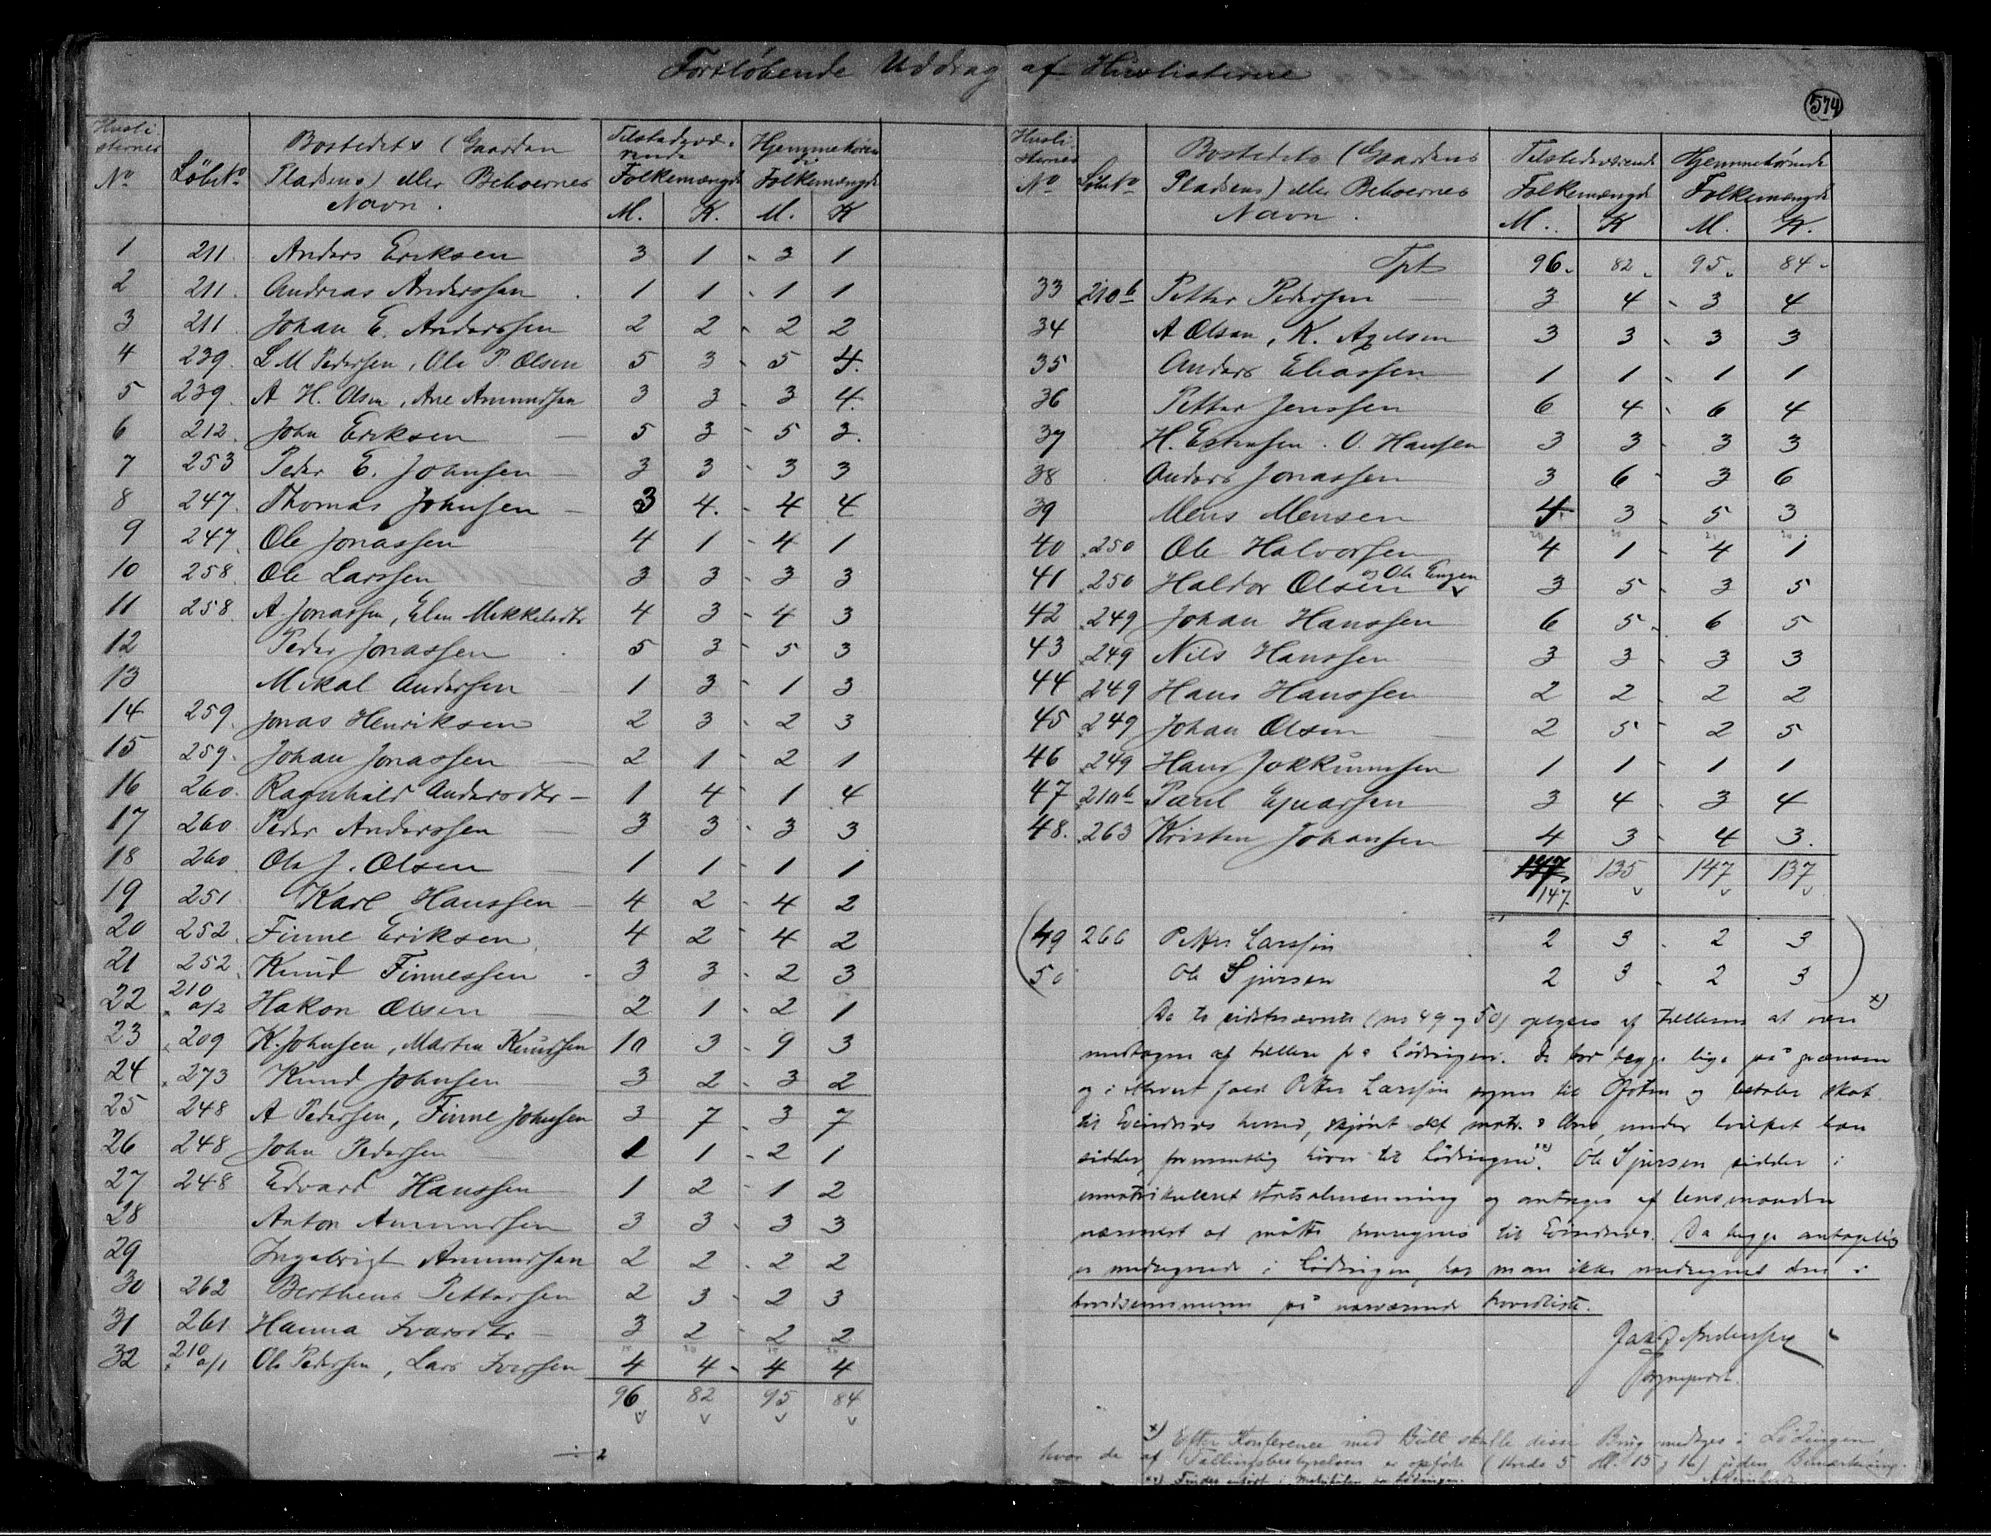 Fortløbende Uddrag af Huslisterne
574
Huslisternes No | Løbe No | Bostedets (Gaarden Pladsens) eller Beboernes Navn. | Tilstedeværende Folkemængde M. K. | Hjemmehørende Folkemængde M. K
1 211. Anders Eriksen 3 1 3 1
2 211. Andreas Anderssen 1 1 1 1
3 211. Johan E. Anderssen 2 2 2 2
4 239. L M Pederssen, Ole P. Olsen 5 3 5 4.
5 239. A H. Olsen, Ane Amundsen 3 3 3 4.
6 212. John Eriksen 5 3 5 3.
7 253 Peder E. Johnsen 3 3 3 3
8 247. Thomas Johnsen 3 4. 4 4
9 247. Ole Jonassen 4 1 4 1
10 258. Ole Larssen 3 3 3 3
11 258. A. Jonassen, Elen Mikkelsdtr 4 3 4 3
12 Peder Jonassen 5 3 5 3
13 Mikal Anderssen 1 3 1 3
14 259. Jonas Henriksen 2 3 2 3
15 259. Johan Jonassen 2 1 2 1
16 260. Ragnhild Andersdtr 1 4 1 4
17 260 Peder Anderssen 3 3 3 3
18 260 Ole J. Olsen 1 1 1 1
19 251. Karl Hanssen 4 2 4 2
20 252. Finne Eriksen 4 2 4 2
21 252. Knud Finnessen 3 3 2 3
22 210 a/2 Hakon Olsen 2 1 2 1
23 209 K. Johnsen, Martin Knudssen 10 3 9 3
24 273 Knud Johnsen 3 2 3 2
25 248 A Pedersen, Finne Johnsen 3 7 3 7
26 248 John Pedersen 2 1 2 1
27 248 Edvard Hanssen 1 2 1 2
28 Anton Amundsen 3 3 3 3
29 Ingebrigt Amundsen 2 2 2 2
30 262 Bertheus Pettersen 2 3 2 3
31 261 Hanna Ivarsdtr 3 2 2 2
32 210 a/1 Ole Pedersen, Lars Iverssen 4 4 4 4
96 82 95 84
÷ 2
Huslisternes No | Løbe No | Bostedets (Gaardens Pladsens) eller Beboernes Navn. | Tilstedeværende Folkemængde M. K | Hjemmehørende Folkemængde M. K.
Tpt 96. 82. 95. 84
33 210 b Petter Pedersen 3 4 3 4
34 A Olsen, K. Axelsen 3 3 3 3
35 Anders Eliassen 1 1 1 1
36 Petter Jenssen 6 4 6 4
37 H. Estensen. O. Hansen 3 3 3 3
38 Anders Jonassen 3 6 3 6
39 Mens Mensen 4 3 5 3
40 250 Ole Halvorsen 4 1 4 1
41 250 Haldor Olsen og Ole Engen 3 5 3 5
42 249 Johan Hanssen 6 5 6 5
43 249 Nils Hanssen 3 3 3 3
44 249 Hans Hanssen 2 2 2 2
45 249 Johan Olsen 2 5 2 5
46 249 Hans Jokkumsen 1 1 1 1
47 210 b Paul Ejnarsen 3 4 3 4
48. 263 Kristen Johansen 4 3 4 3.
147 135 147 137
147.
(49 266 Petter Larssen 2 3 2 3
50 Ole Sjursen 2 3 2 3)
De to sidstnævnte (no 49 og 50) opgives af tælleren at være x)
medtagne af tællere fra Lødingen. De bor begge lige på grænsen
og i ethvert fald Petter Larssen sogner til Ofoten og betaler skat
til Evindnes herred, skjønt det matr. , under hvilket han
sidder, formentlig hører til Lødingen xx). Ole Sjursen sidder i
umatrikuleret statsalmenning og antages af lensmanden
nærmest at måtte henregnes til Evindnes. Da begge antagelig
er medregnede i Lødingen, har man ikke medregnet dem i
hovedsummen på nærværende hovedliste.
Anderssen
Sogneprest.
x) Efter Konference med Bull skulle disse Brug medtages i Lødingen
hvor de af Tællingsbestyrelsen er opført (Kreds 5 Hl. 15 og 16) uden Bemærkning.
xx) Findes anført i Matrikulen for Lødingen.